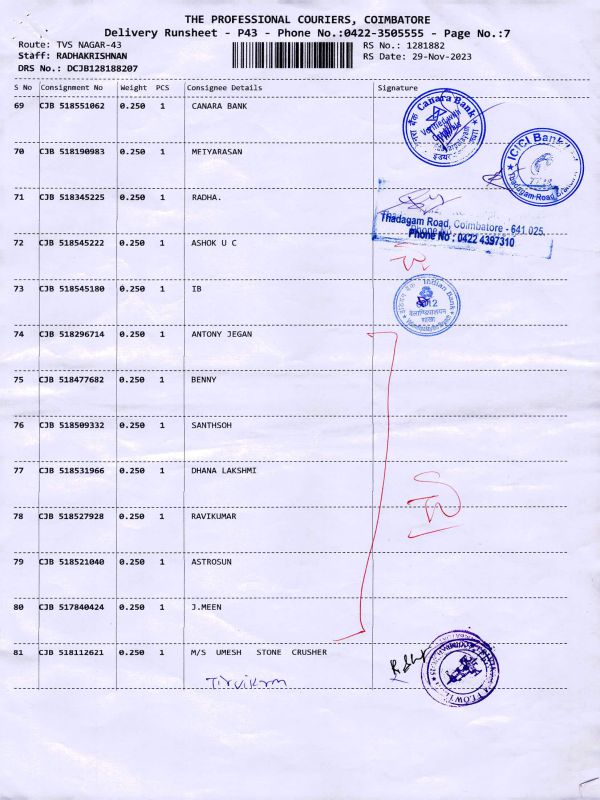 THE PROFESSIONAL COURIERS, COIMBATORE
Delivery Runsheet - P43 - Phone No.:0422-3505555 - Page No.:7
Route: TVS NAGAR-43 RS No.: 1281882
Staff: RADHAKRISHNAN RS Date: 29-Nov-2023
DRS No.: DCJB128188207
S No Consignment No Weight PCS Consignee Details Signature
69 CJB 518551062 0.250 1 CANARA BANK
Canara Bank
ICICI Bank
Thadagam Road Branch
70 CJB 518190983 0.250 1 MEIYARASAN
71 CJB 518345225 0.250 1 RADHA.
Thadagam Road, Coimbatore - 641 025.
Phone No : 0422 4397310
72 CJB 518545222 0.250 1 ASHOK U C
73 CJB 518545180 0.250 1 IB
इंडियन बैंक Indian Bank
शाखा
74 CJB 518296714 0.250 1 ANTONY JEGAN
75 CJB 518477682 0.250 1 BENNY
76 CJB 518509332 0.250 1 SANTHSOH
77 CJB 518531966 0.250 1 DHANA LAKSHMI
78 CJB 518527928 0.250 1 RAVIKUMAR
79 CJB 518521040 0.250 1 ASTROSUN
80 CJB 517840424 0.250 1 J.MEEN
81 CJB 518112621 0.250 1 M/S UMESH STONE CRUSHER